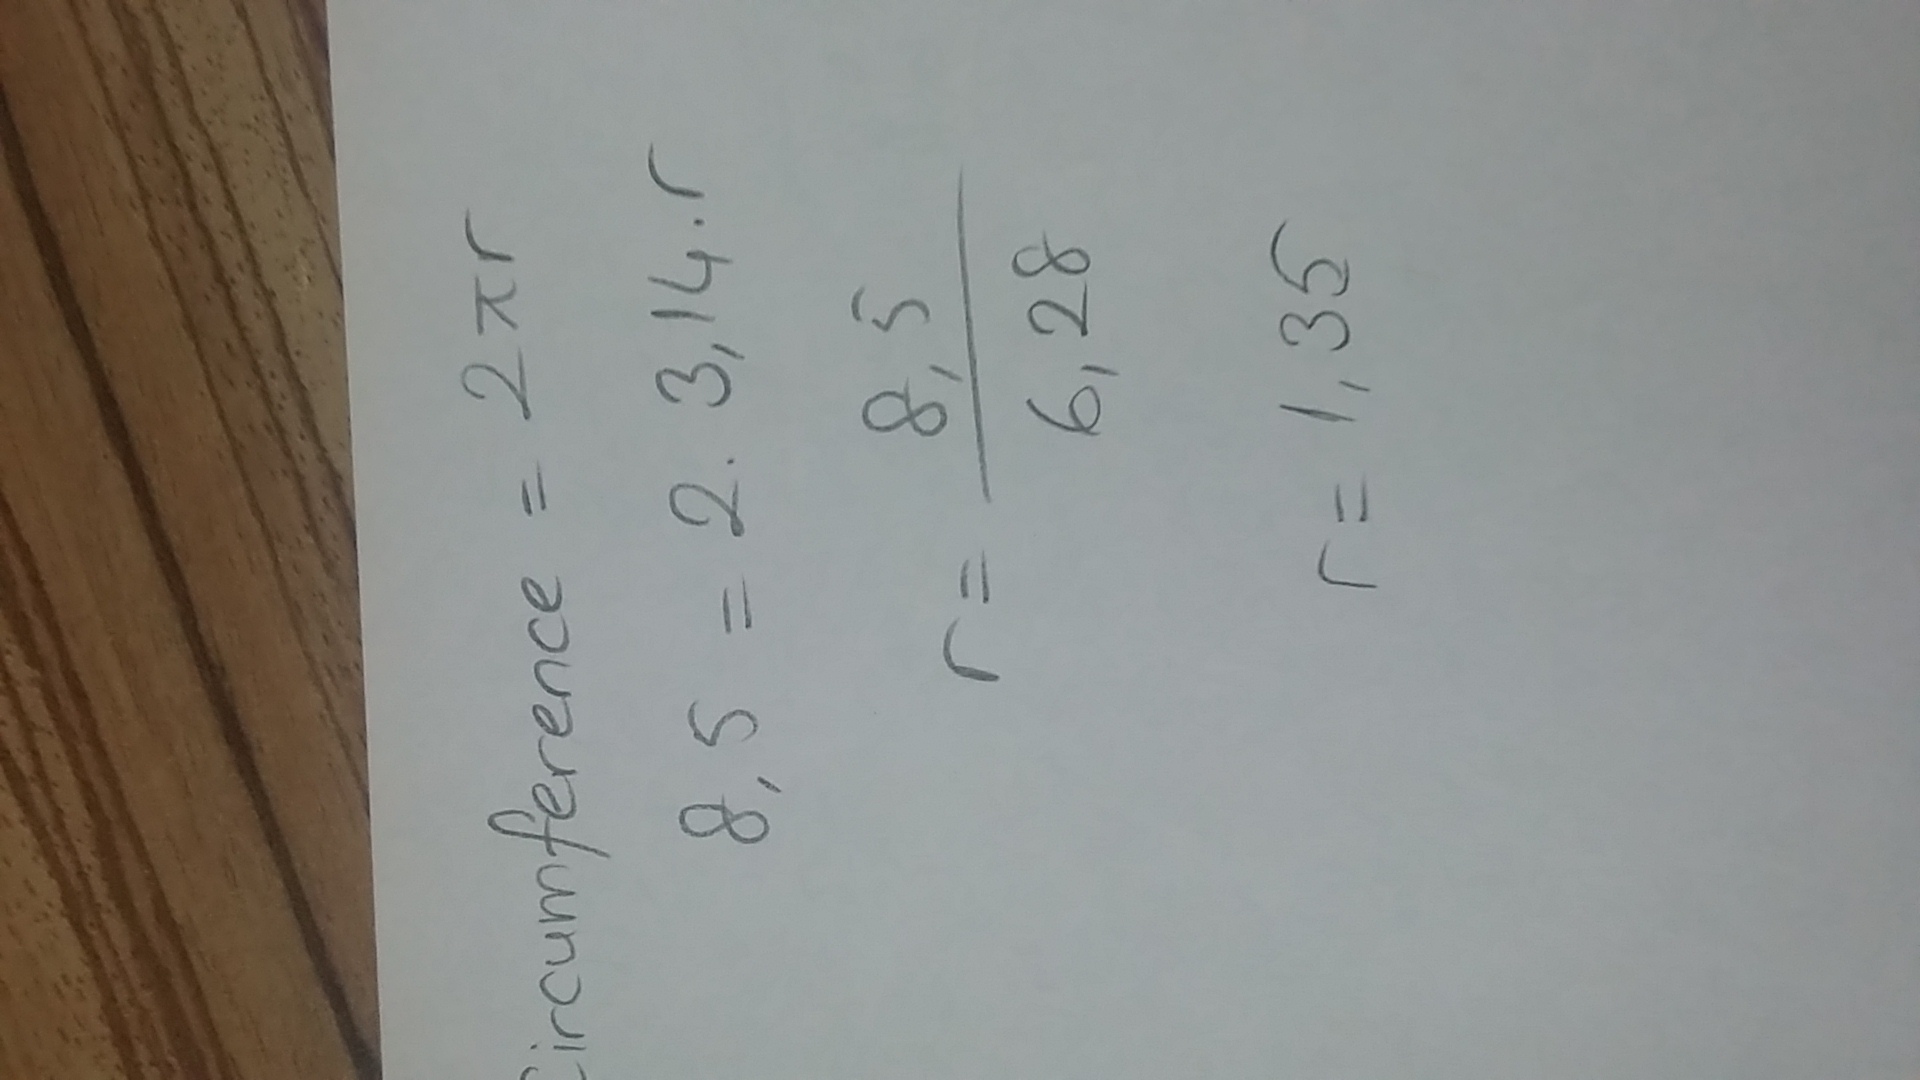 Circumference = 2πr
8,5 = 2. 3,14.r
r = 8,5 / 6,28
r = 1,35